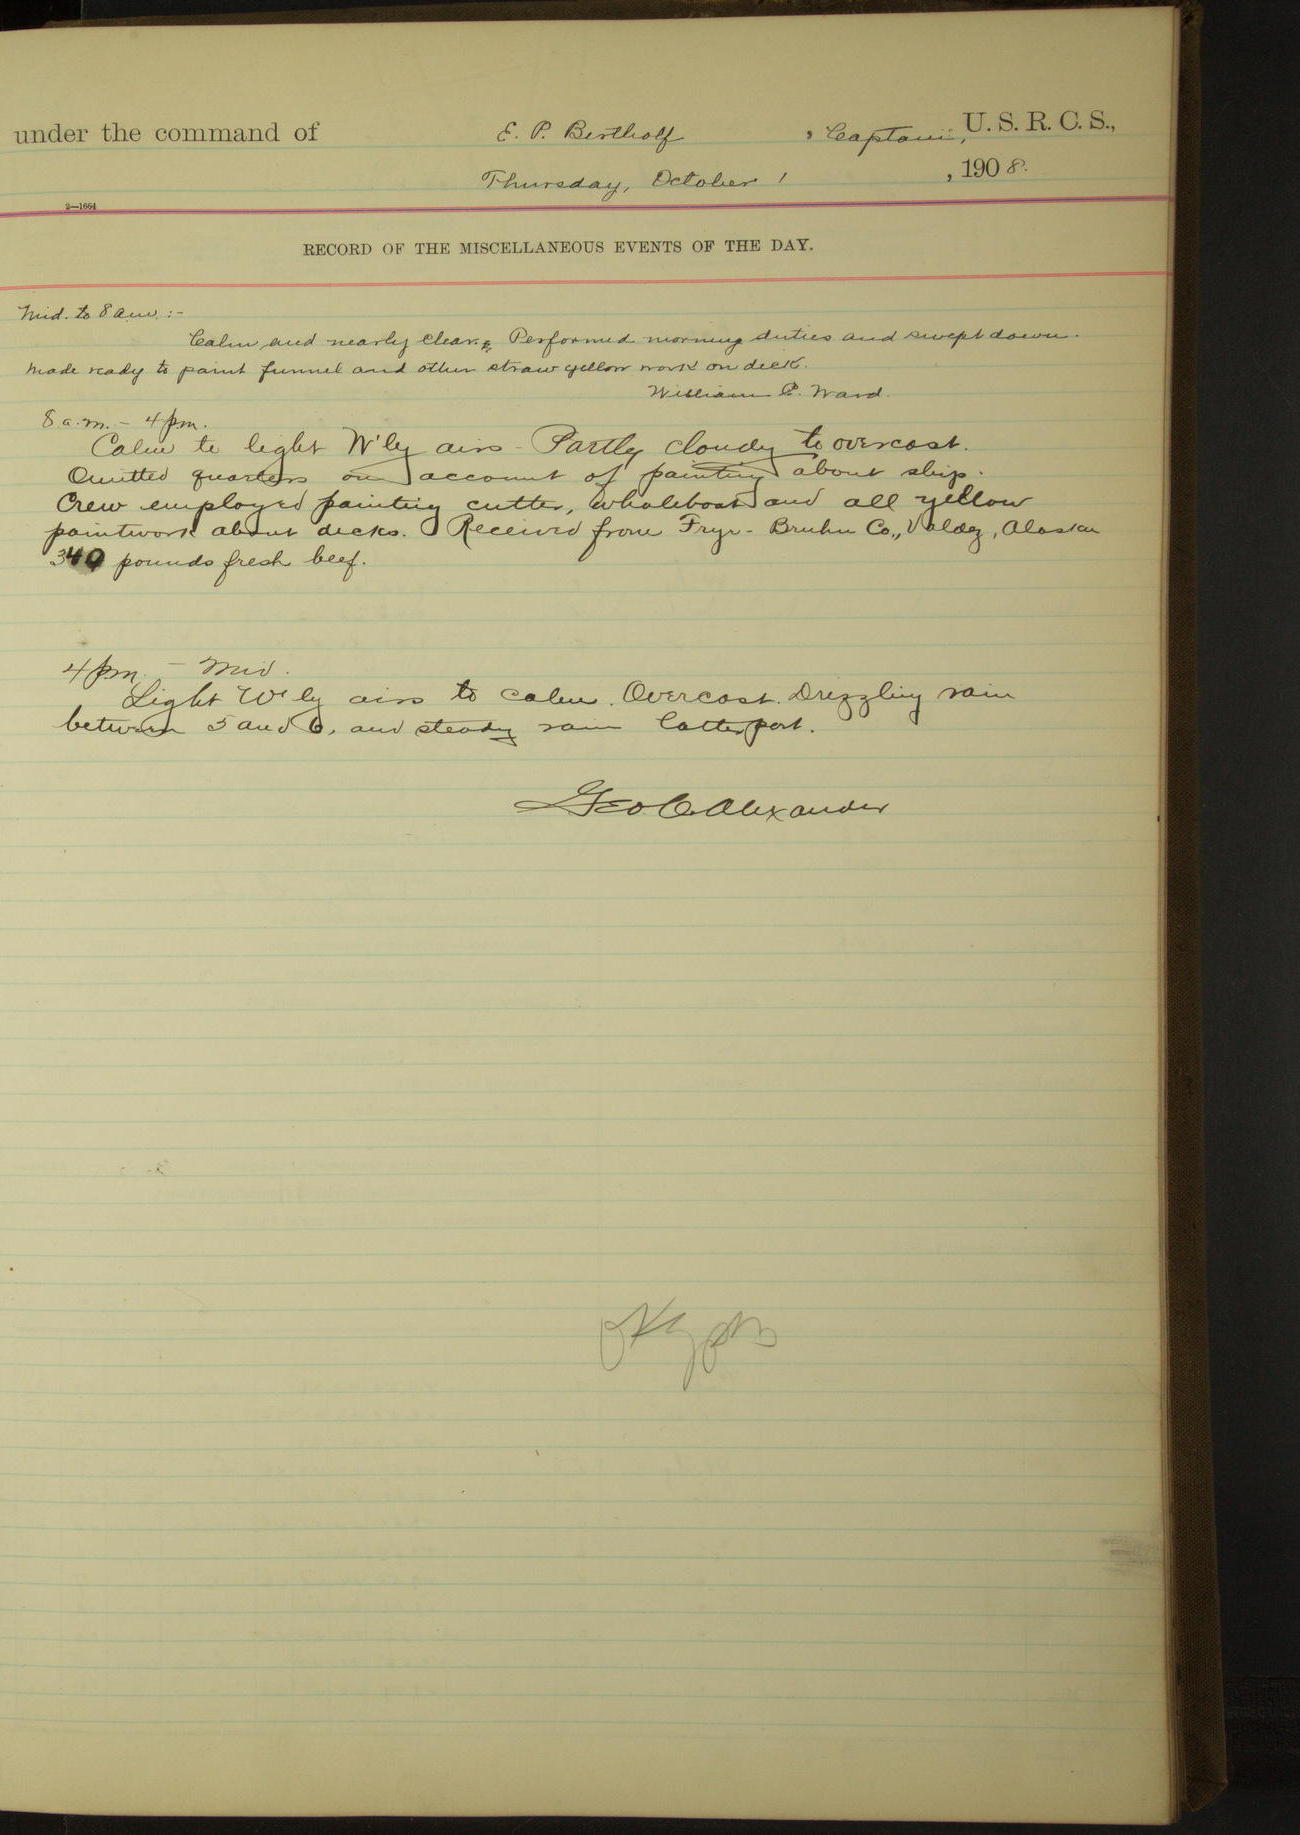 under the command of E. P. Bertholf, Captain, U. S. R. C. S.,
Thursday, October 1, 1908.
2—1664
RECORD OF THE MISCELLANEOUS EVENTS OF THE DAY.
Mid. to 8 a.m. :-
Calm and nearly clear. Performed morning duties and swept down.
Made ready to paint funnel and other straw yellow work on deck.
William P. Ward.
8 a.m. - 4 pm.
Calm to light W'ly airs - Partly cloudy to overcast.
Omitted quarters on account of painting about ship.
Crew employed painting cutter, whaleboat and all yellow
paintwork about decks. Received from Frye-Bruhn Co., Valdez, Alaska
340 pounds fresh beef.
4 pm. - Mid.
Light W'ly airs to calm. Overcast. Drizzling rain
between 5 and 6, and steady rain latter part.
Geo C. Alexander